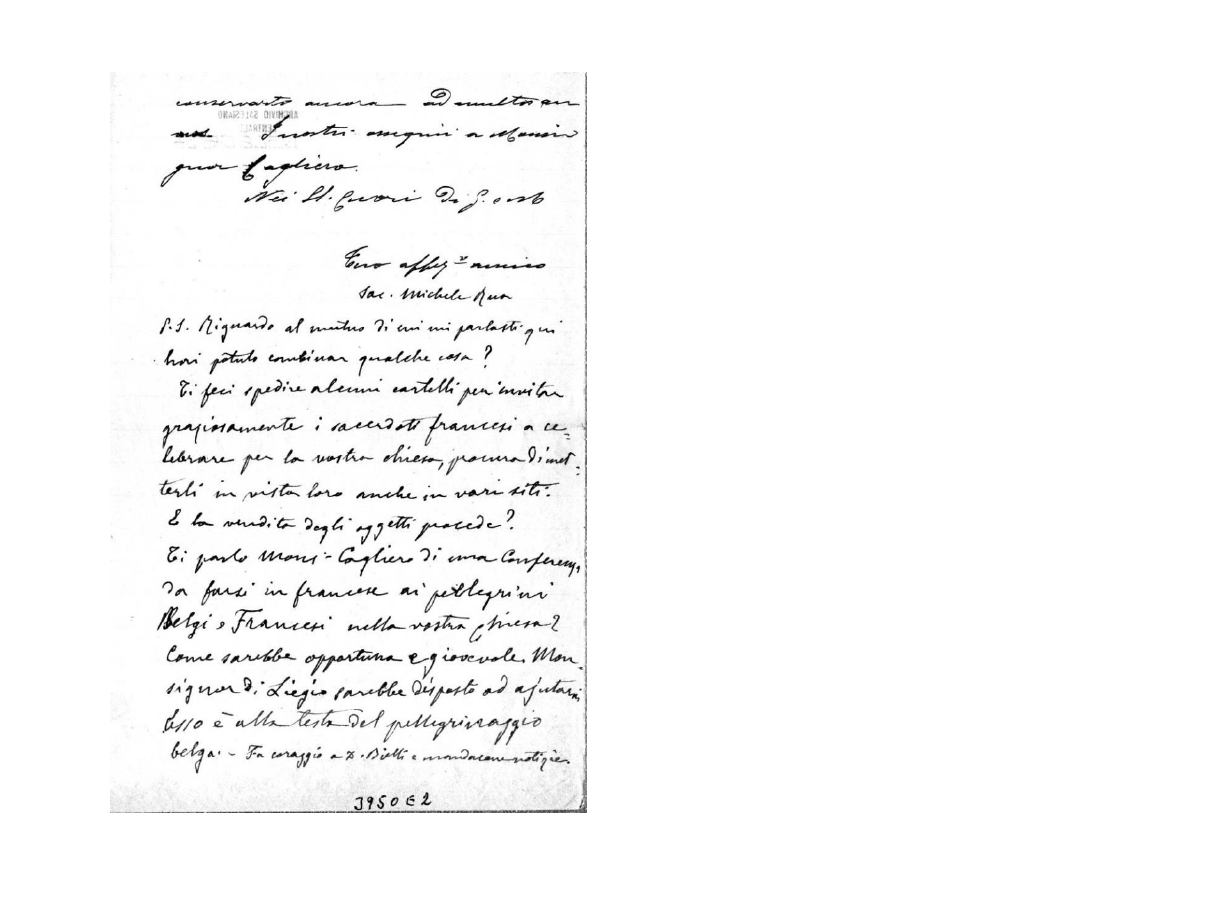 conservarlo ancora ad multos an
nos. I nostri ossequii a Monsi
gnor Cagliero.
Nei SS. Cuori di G.
Tuo affez.º amico
Sac. Michele Rua
P.S. Riguardo al mutuo di cui mi parlasti qui
hai potuto combinar qualche cosa?
Ti feci spedire alcuni cartelli per invitar
graziosamente i sacerdoti francesi a ce=
lebrare per la vostra chiesa, procura di met=
terli in vista loro anche in vari siti.
E la vendita degli oggetti procede?
Ti parlò Mons. Cagliero di una Conferenza
da farsi in francese ai pellegrini
Belgi e Francesi nella vostra chiesa?
Come sarebbe opportuna e giovevole. Mon-
signor di Liegio sarebbe disposto ad ajutarvi
Esso è alla testa del pellegrinaggio
belga. - Fa coraggio a D. Bietti e mandacene notizie.
3950 E 2
ARCHIVIO SALESIANO
CENTRALE